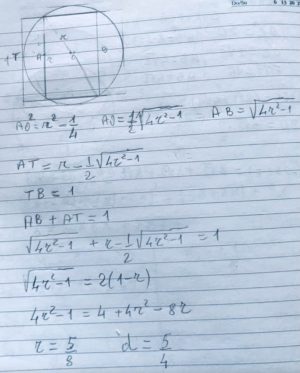 r
1 T A r O B
AO² = r² - 1/4 AO = 1/2 √4r²-1 AB = √4r²-1
AT = r - 1/2 √4r²-1
TB = 1
AB + AT = 1
√4r²-1 + r - 1/2 √4r²-1 = 1
√4r²-1 = 2(1-r)
4r²-1 = 4 + 4r² - 8r
r = 5/8 d = 5/4